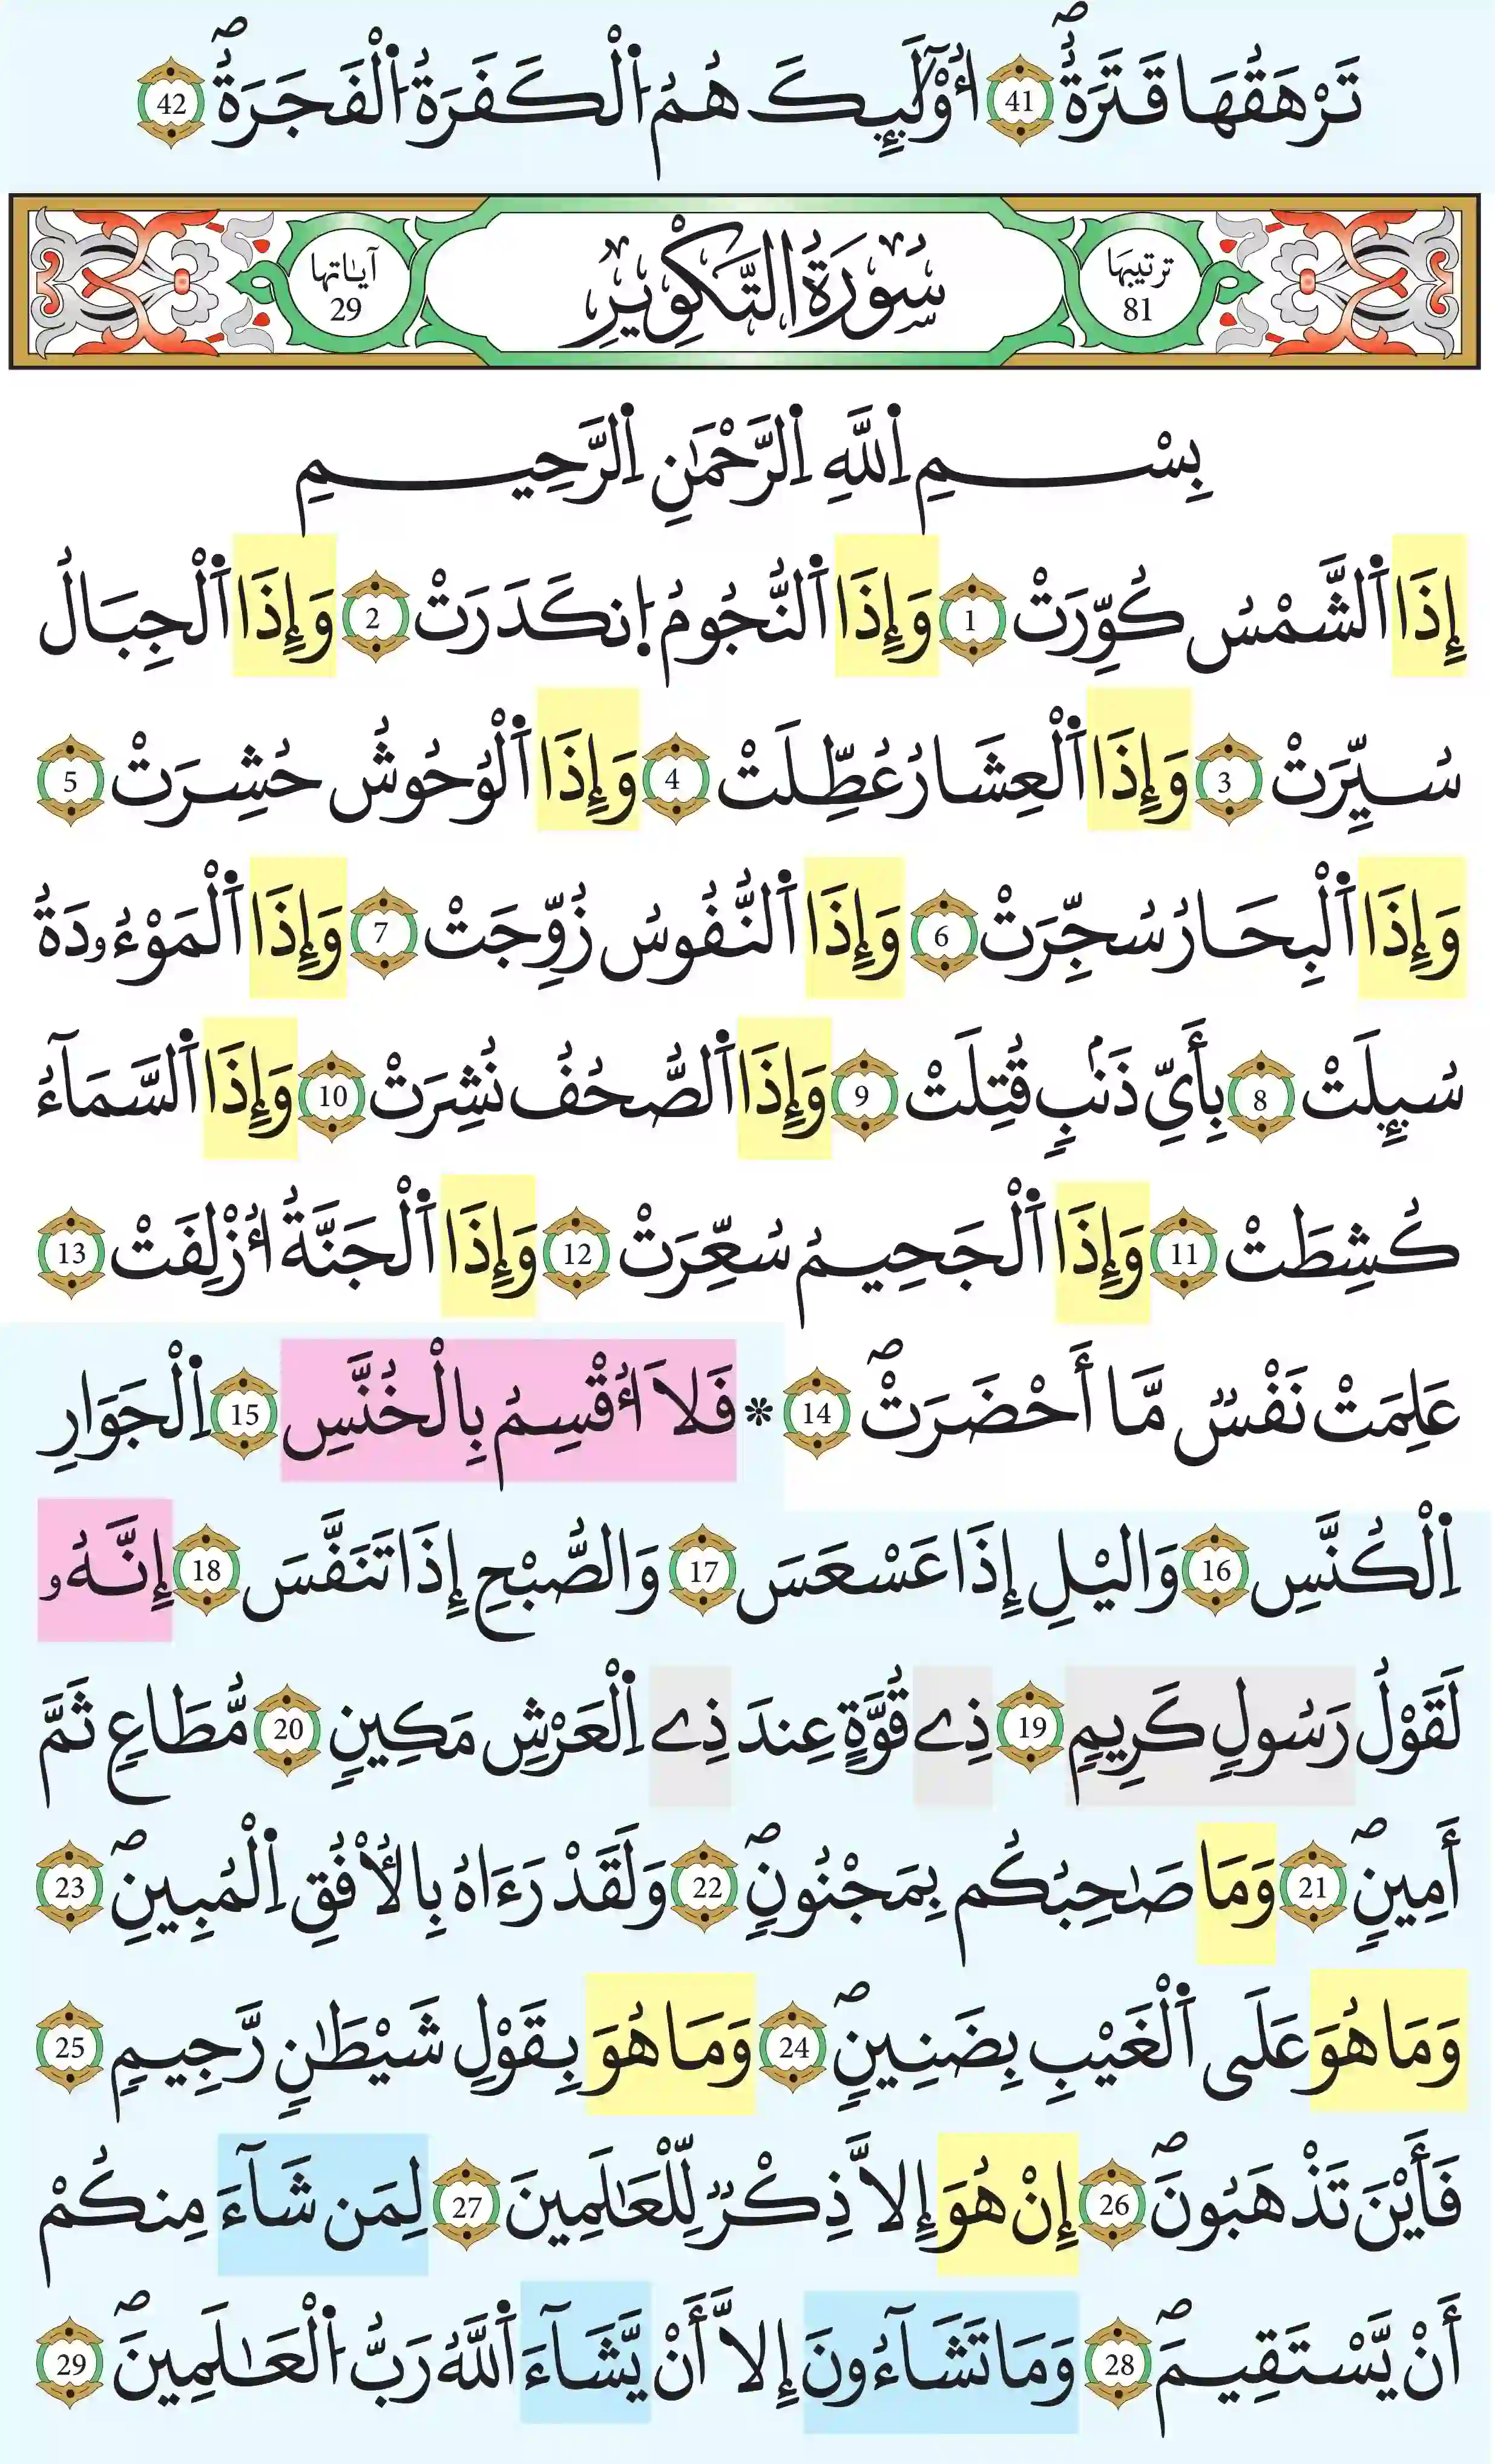 تَرْهَقُهَا قَتَرَةٌۖ 41 أُوْلَٰٓئِكَ هُمُ اُ۬لْكَفَرَةُ اُ۬لْفَجَرَةُۖ 42
ترتيبها 81 سُورَةُ التَّكْوِيرِ آياتها 29
بِسْمِ اِ۬للَّهِ اِ۬لرَّحْمَٰنِ اِ۬لرَّحِيمِ
إِذَا اَ۬لشَّمْسُ كُوِّرَتْ 1 وَإِذَا اَ۬لنُّجُومُ اُ۪نكَدَرَتْ 2 وَإِذَا اَ۬لْجِبَالُ
سُيِّرَتْ 3 وَإِذَا اَ۬لْعِشَارُ عُطِّلَتْ 4 وَإِذَا اَ۬لْوُحُوشُ حُشِرَتْ 5
وَإِذَا اَ۬لْبِحَارُ سُجِّرَتْ 6 وَإِذَا اَ۬لنُّفُوسُ زُوِّجَتْ 7 وَإِذَا اَ۬لْمَوْءُۥدَةُ
سُئِلَتْ 8 بِأَيِّ ذَنۢبٖ قُتِلَتْ 9 وَإِذَا اَ۬لصُّحُفُ نُشِرَتْ 10 وَإِذَا اَ۬لسَّمَآءُ
كُشِطَتْ 11 وَإِذَا اَ۬لْجَحِيمُ سُعِّرَتْ 12 وَإِذَا اَ۬لْجَنَّةُ أُزْلِفَتْ 13
عَلِمَتْ نَفْسٞ مَّا أَحْضَرَتْۖ 14 * فَلَا أُقْسِمُ بِالْخُنَّسِ 15 اِ۬لْجَوَارِ
اِ۬لْكُنَّسِ 16 وَاليْلِ إِذَا عَسْعَسَ 17 وَالصُّبْحِ إِذَا تَنَفَّسَ 18 إِنَّهُۥ
لَقَوْلُ رَسُولٖ كَرِيمٖ 19 ذِے قُوَّةٍ عِندَ ذِے اِ۬لْعَرْشِ مَكِينٖ 20 مُّطَاعٖ ثَمَّ
أَمِينٖۖ 21 وَمَا صَٰحِبُكُم بِمَجْنُونٖۖ 22 وَلَقَدْ رَءَاهُ بِالْأُفُقِ اِ۬لْمُبِينِۖ 23
وَمَا هُوَ عَلَى اَ۬لْغَيْبِ بِضَنِينٖۖ 24 وَمَا هُوَ بِقَوْلِ شَيْطَٰنٖ رَّجِيمٖ 25
فَأَيْنَ تَذْهَبُونَۖ 26 إِنْ هُوَ إِلَّا ذِكْرٞ لِّلْعَٰلَمِينَ 27 لِمَن شَآءَ مِنكُمْ
أَنْ يَّسْتَقِيمَۖ 28 وَمَا تَشَآءُونَ إِلَّا أَنْ يَّشَآءَ اَ۬للَّهُ رَبُّ اُ۬لْعَٰلَمِينَۖ 29